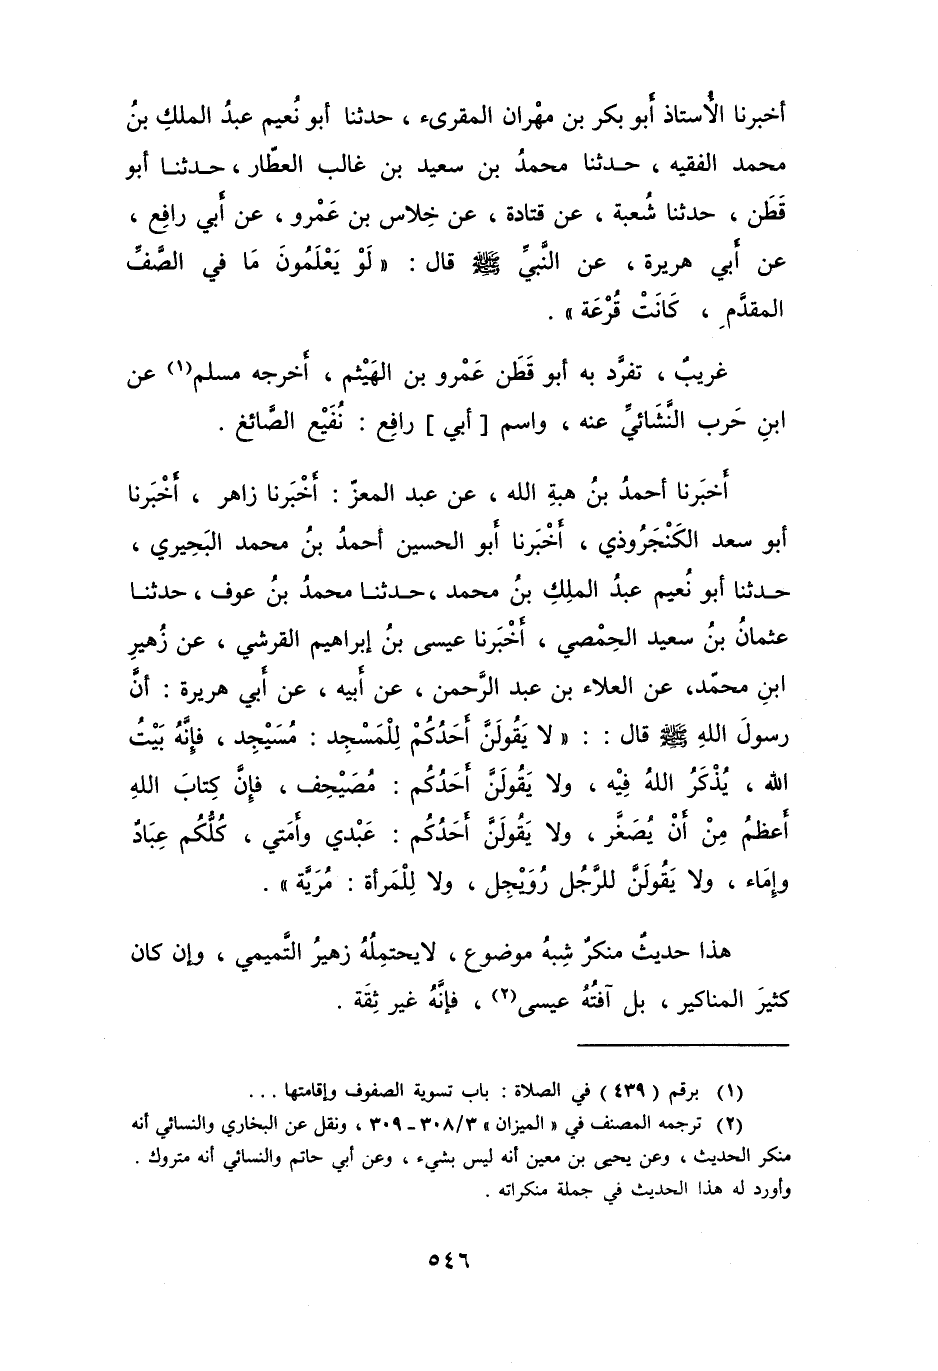 أخبرنا الأُستاذ أَبو بكر بن مهْران المقرىء ، حدثنا أبو نُعيم عبدُ الملكِ بنُ
محمد الفقيه ، حـدثنا محمدُ بن سعيد بن غالب العطّار ، حـدثنـا أبو
قَطَن ، حدثنا شُعبة ، عن قتادة ، عن خِلاس بن عَمْرو ، عن أَبي رافِع ،
عن أَبي هريرة ، عن النَّبيِّ ﷺ قال : « لَوْ يَعْلَمُونَ مَا في الصَّفِّ
المقدَّمِ ، كَانَتْ قُرْعَة » .
غريبٌ ، تفرَّد به أبو قَطَن عَمْرو بن الهَيْثم ، أَخرجه مسلم(١) عن
ابنِ حَرب النَّشَائيِّ عنه ، واسم [ أبي ] رافِع : نُفَيْع الصَّائغ .
أَخبَرنا أحمدُ بنُ هبةِ الله ، عن عبد المعزّ : أَخْبَرنا زاهر ، أَخْبَرنا
أبو سعد الكَنْجَرُوذي ، أَخْبَرنا أَبو الحسين أحمدُ بنُ محمد البَحِيري ،
حـدثنا أبو نُعيم عبدُ الملِكِ بنُ محمد ، حـدثنـا محمدُ بنُ عوف ، حدثنـا
عثمانُ بنُ سعيد الحِمْصي ، أَخْبَرنا عيسى بنُ إبراهيم القرشي ، عن زُهيرِ
ابنِ محمّد، عن العلاء بن عبد الرَّحمن ، عن أَبيه ، عن أَبي هريرة : أنَّ
رسولَ اللهِ ﷺ قال : : « لا يَقُولَنَّ أَحَدُكُمْ لِلْمَسْجِد : مُسَيْجِد ، فإنَّهُ بَيْتُ
الله ، يُذْكَرُ اللهُ فِيْه ، ولا يَقُولَنَّ أَحَدُكُم : مُصَيْحِف ، فإِنَّ كِتابَ اللهِ
أَعظمُ مِنْ أَنْ يُصَغَّر ، ولا يَقُولَنَّ أَحَدُكُم : عَبْدي وأَمَتي ، كُلُّكُم عِبَادٌ
وإِمَاء ، ولا يَقُولَنَّ للرَّجُل رُوَيْجِل ، ولا لِلْمَرأة : مُرَيَّة » .
هذا حديثٌ منكرٌ شِبهُ موضوع ، لايحتمِلُهُ زهيرُ التَّميمي ، وإن كان
كثيرَ المناكير ، بل آفتُهُ عيسى(٢) ، فإنَّهُ غير ثِقَة .
(١) برقم ( ٤٣٩ ) في الصلاة : باب تسوية الصفوف وإقامتها ...
(٢) ترجمه المصنف في « الميزان » ٣/ ٣٠٨ ـ ٣٠٩ ، ونقل عن البخاري والنسائي أنه
منكر الحديث ، وعن يحيى بن معين أنه ليس بشيء ، وعن أبي حاتم والنسائي أنه متروك .
وأورد له هذا الحديث في جملة منكراته .
٥٤٦